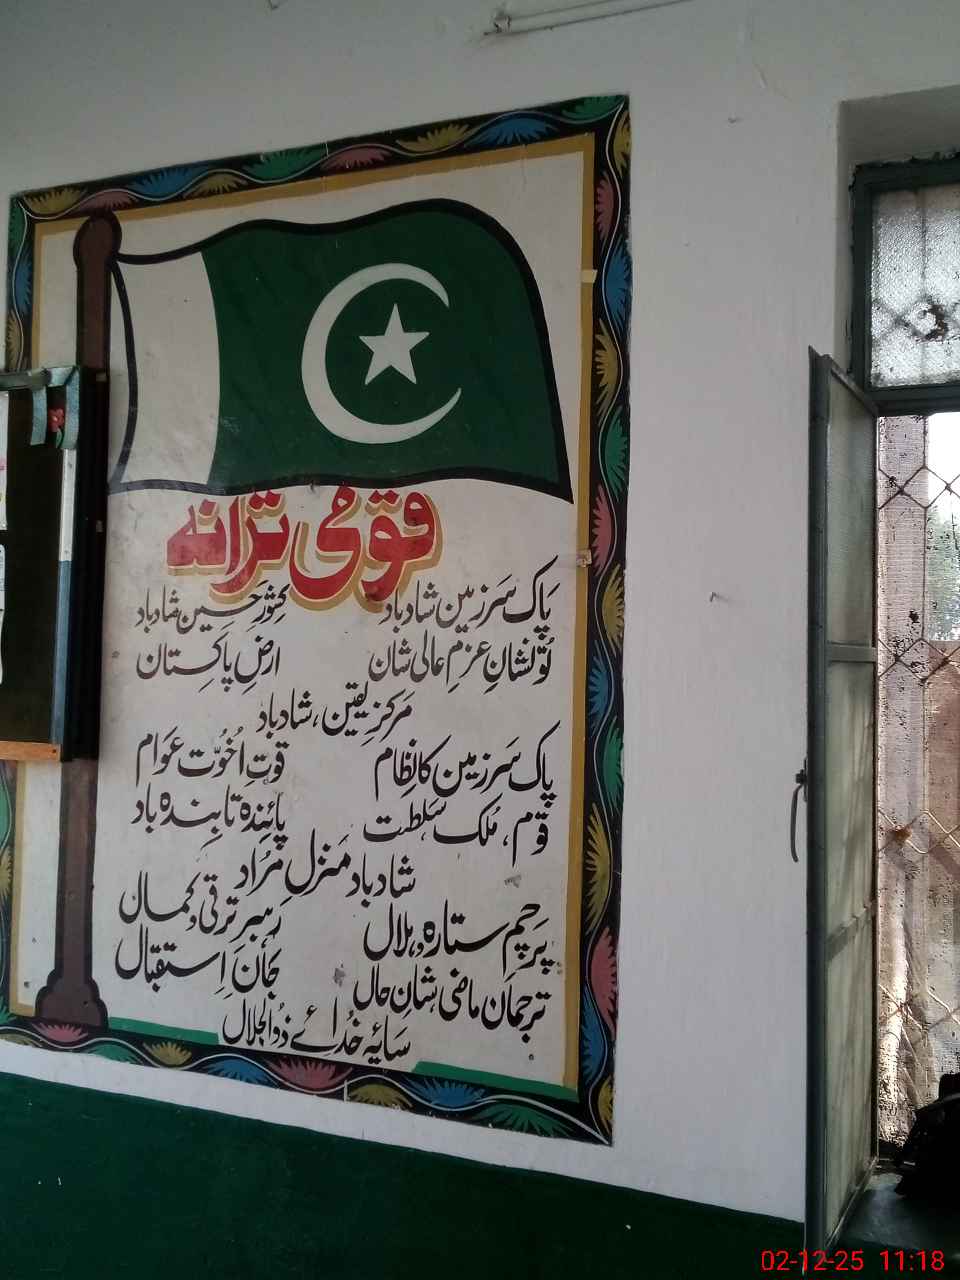 قومی ترانہ
پاک سَرزمین شادباد کِشورِ حَسِین شادباد
تُو نشانِ عزمِ عالی شان ارضِ پاکِستان
مَرکزِ یقین، شادباد
پاک سَرزمین کا نِظام قوتِ اُخُوّت عَوام
قوم، مُلک سَلطنت پائِندہ تابِندہ باد
شاد باد مَنزلِ مُراد
پَرچمِ ستارہ و ہلال رَہبرِ ترقی و کمال
ترجمانِ ماضی شانِ حال جانِ اِستقبال
سَایۂ خُدائے ذُوالجلال
02-12-25 11:18